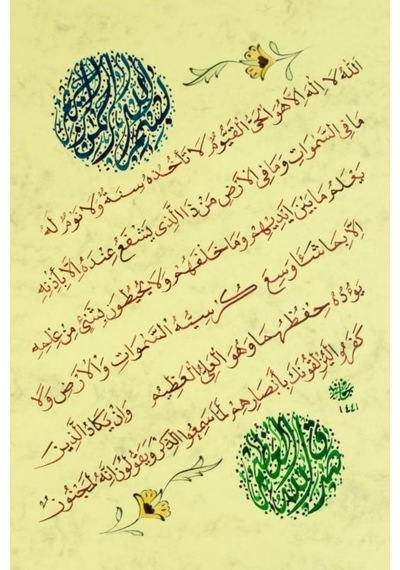 بسم الله الرحمن الرحيم
اَللّٰهُ لَا اِلٰهَ اِلَّا هُوَ الْحَيُّ الْقَيُّومُ لَا تَأْخُذُهُ سِنَةٌ وَلَا نَوْمٌ لَهُ
مَا فِي السَّمٰوَاتِ وَمَا فِي الْاَرْضِ مَنْ ذَا الَّذِي يَشْفَعُ عِنْدَهُ اِلَّا بِاِذْنِهِ
يَعْلَمُ مَا بَيْنَ اَيْدِيهِمْ وَمَا خَلْفَهُمْ وَلَا يُحِيطُونَ بِشَيْءٍ مِنْ عِلْمِهِ
اِلَّا بِمَا شَاءَ وَسِعَ كُرْسِيُّهُ السَّمٰوَاتِ وَالْاَرْضَ وَلَا
يَؤُدُهُ حِفْظُهُمَا وَهُوَ الْعَلِيُّ الْعَظِيمُ وَاِنْ يَكَادُ الَّذِينَ
كَفَرُوا لَيُزْلِقُونَكَ بِاَبْصَارِهِمْ لَمَّا سَمِعُوا الذِّكْرَ وَيَقُولُونَ اِنَّهُ لَمَجْنُونٌ
١٤٤١
صدق الله العظيم